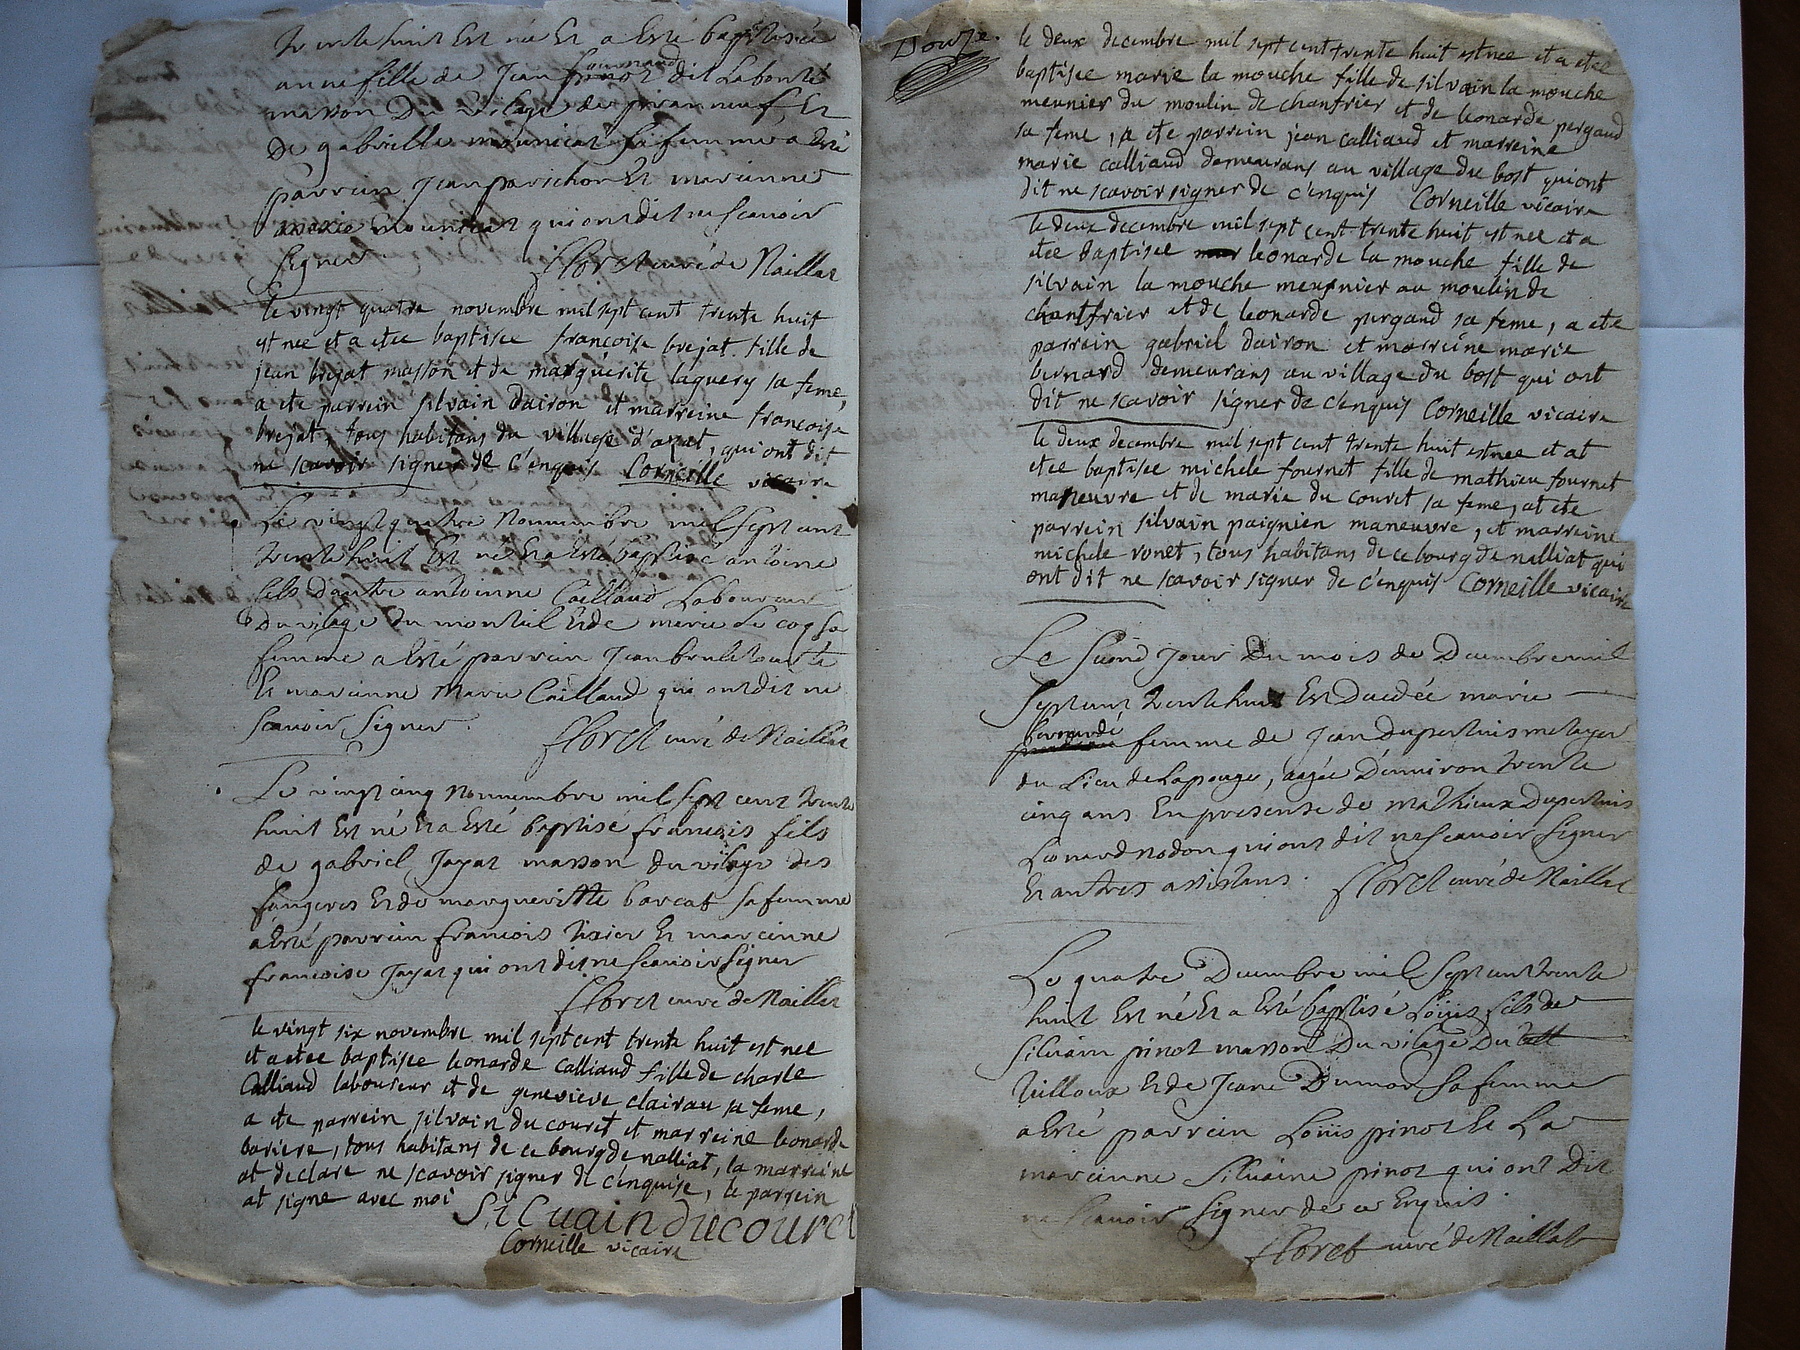 trente huit Est né Et a Esté baptisée
anne fille de Jean dit Labonté
masson Du vilage de Et
De gabrielle mounicat sa femme a Esté
parrain Jean parichon Et marainne
marie mounicat qui ont dit ne scavoir
signer floret curé de Naillat
le vingt quatre novembre mil sept cent trente huit
est nee et a etee baptisee francoise brejat fille de
jean brejat masson et de marguérite laguery sa feme,
a ete parrein silvain dairon et marreine francoise
brejat, tous habitans du village d'azat, qui ont dit
ne scavoir signer de c'enquis Corneille vicaire
Le vingt quatre Nouembre mil sept cent
trente huit Est né Et a Esté baptisé antoine
fils dautre antoinne Caillaud Laboureur
Du vilage du monteil Et de marie Le coq sa
femme a Esté parrain Jean
Et marainne Marie Caillaud qui ont dit ne
scauoir signer floret curé de Naillat
Le vingt cinq Nouuembre mil sept cent trente
huit Est né Et a Esté baptisé francois fils
de gabriel Jayat masson du vilage des
fougeres Et de margueritte barcat sa femme
a Esté parrain francois tixier Et marainne
francoise Jayat qui ont dit ne scauoir signer
floret curé de Naillat
le vingt six novembre mil sept cent trente huit est nee
et a etee baptisee leonarde calliaud fille de charle
Calliaud laboureur et de genevieve clairau sa feme,
a ete parrein silvain du couret et marreine leonarde
bariere, tous habitans de ce bourg de nalliat, la marreine
at declare ne scavoir signer de c'enquise, le parrein
at signe avec moi Silvain ducouret
Corneille vicaire
Douze.
le deux decembre mil sept cent trente huit est nee et a etee
baptisee marie la mouche fille de silvain la mouche
meunier du moulin de chanfrier et de leonarde pergaud
sa feme, a ete parrein jean calliaud et marreine
marie calliaud demeurans au village du bost qui ont
dit ne scavoir signer de c'enquis Corneille vicaire
le deux decembre mil sept cent trente huit est nee et a
etee baptisee leonarde la mouche fille de
silvain la mouche meugnier au moulin de
chantfrier et de leonarde pergaud sa feme, a ete
parrein gabriel dairon et marreine marie
bernard demeurans au village du bost qui ont
dit ne scavoir signer de c'enquis Corneille vicaire
le deux decembre mil sept cent trente huit est nee et at
etee baptisee michele fournet fille de mathieu fournet
maneuvre et de marie du couret sa feme, at ete
parrein silvain paignien maneuvre, et marreine
michele ronet, tous habitans de ce bourg de nalliat qui
ont dit ne scavoir signer de c'enquis Corneille vicaire
Le second Jour Du mois de Decembre mil
sept cent trente huit Est Decedée marie
femme de Jean dupertuis metayer
du Lieu de Lapouge, aagée D'enuiron trente
cinq ans En presense de mathieux dupertuis
Leonard nadon qui ont dit ne scauoir signer
Et autres assistans. floret curé de Naillat
Le quatre Decembre mil sept cent trente
huit Est né Et a Esté baptisé Loüis fils de
silvain pinot masson Du vilage Du
teilloux Et de Jeane Dumon sa femme
a Esté parrain Loüis pinot Et La
marainne silvaine pinot qui ont Dit
ne scauoir signer de ce Enquis.
floret curé de Naillat